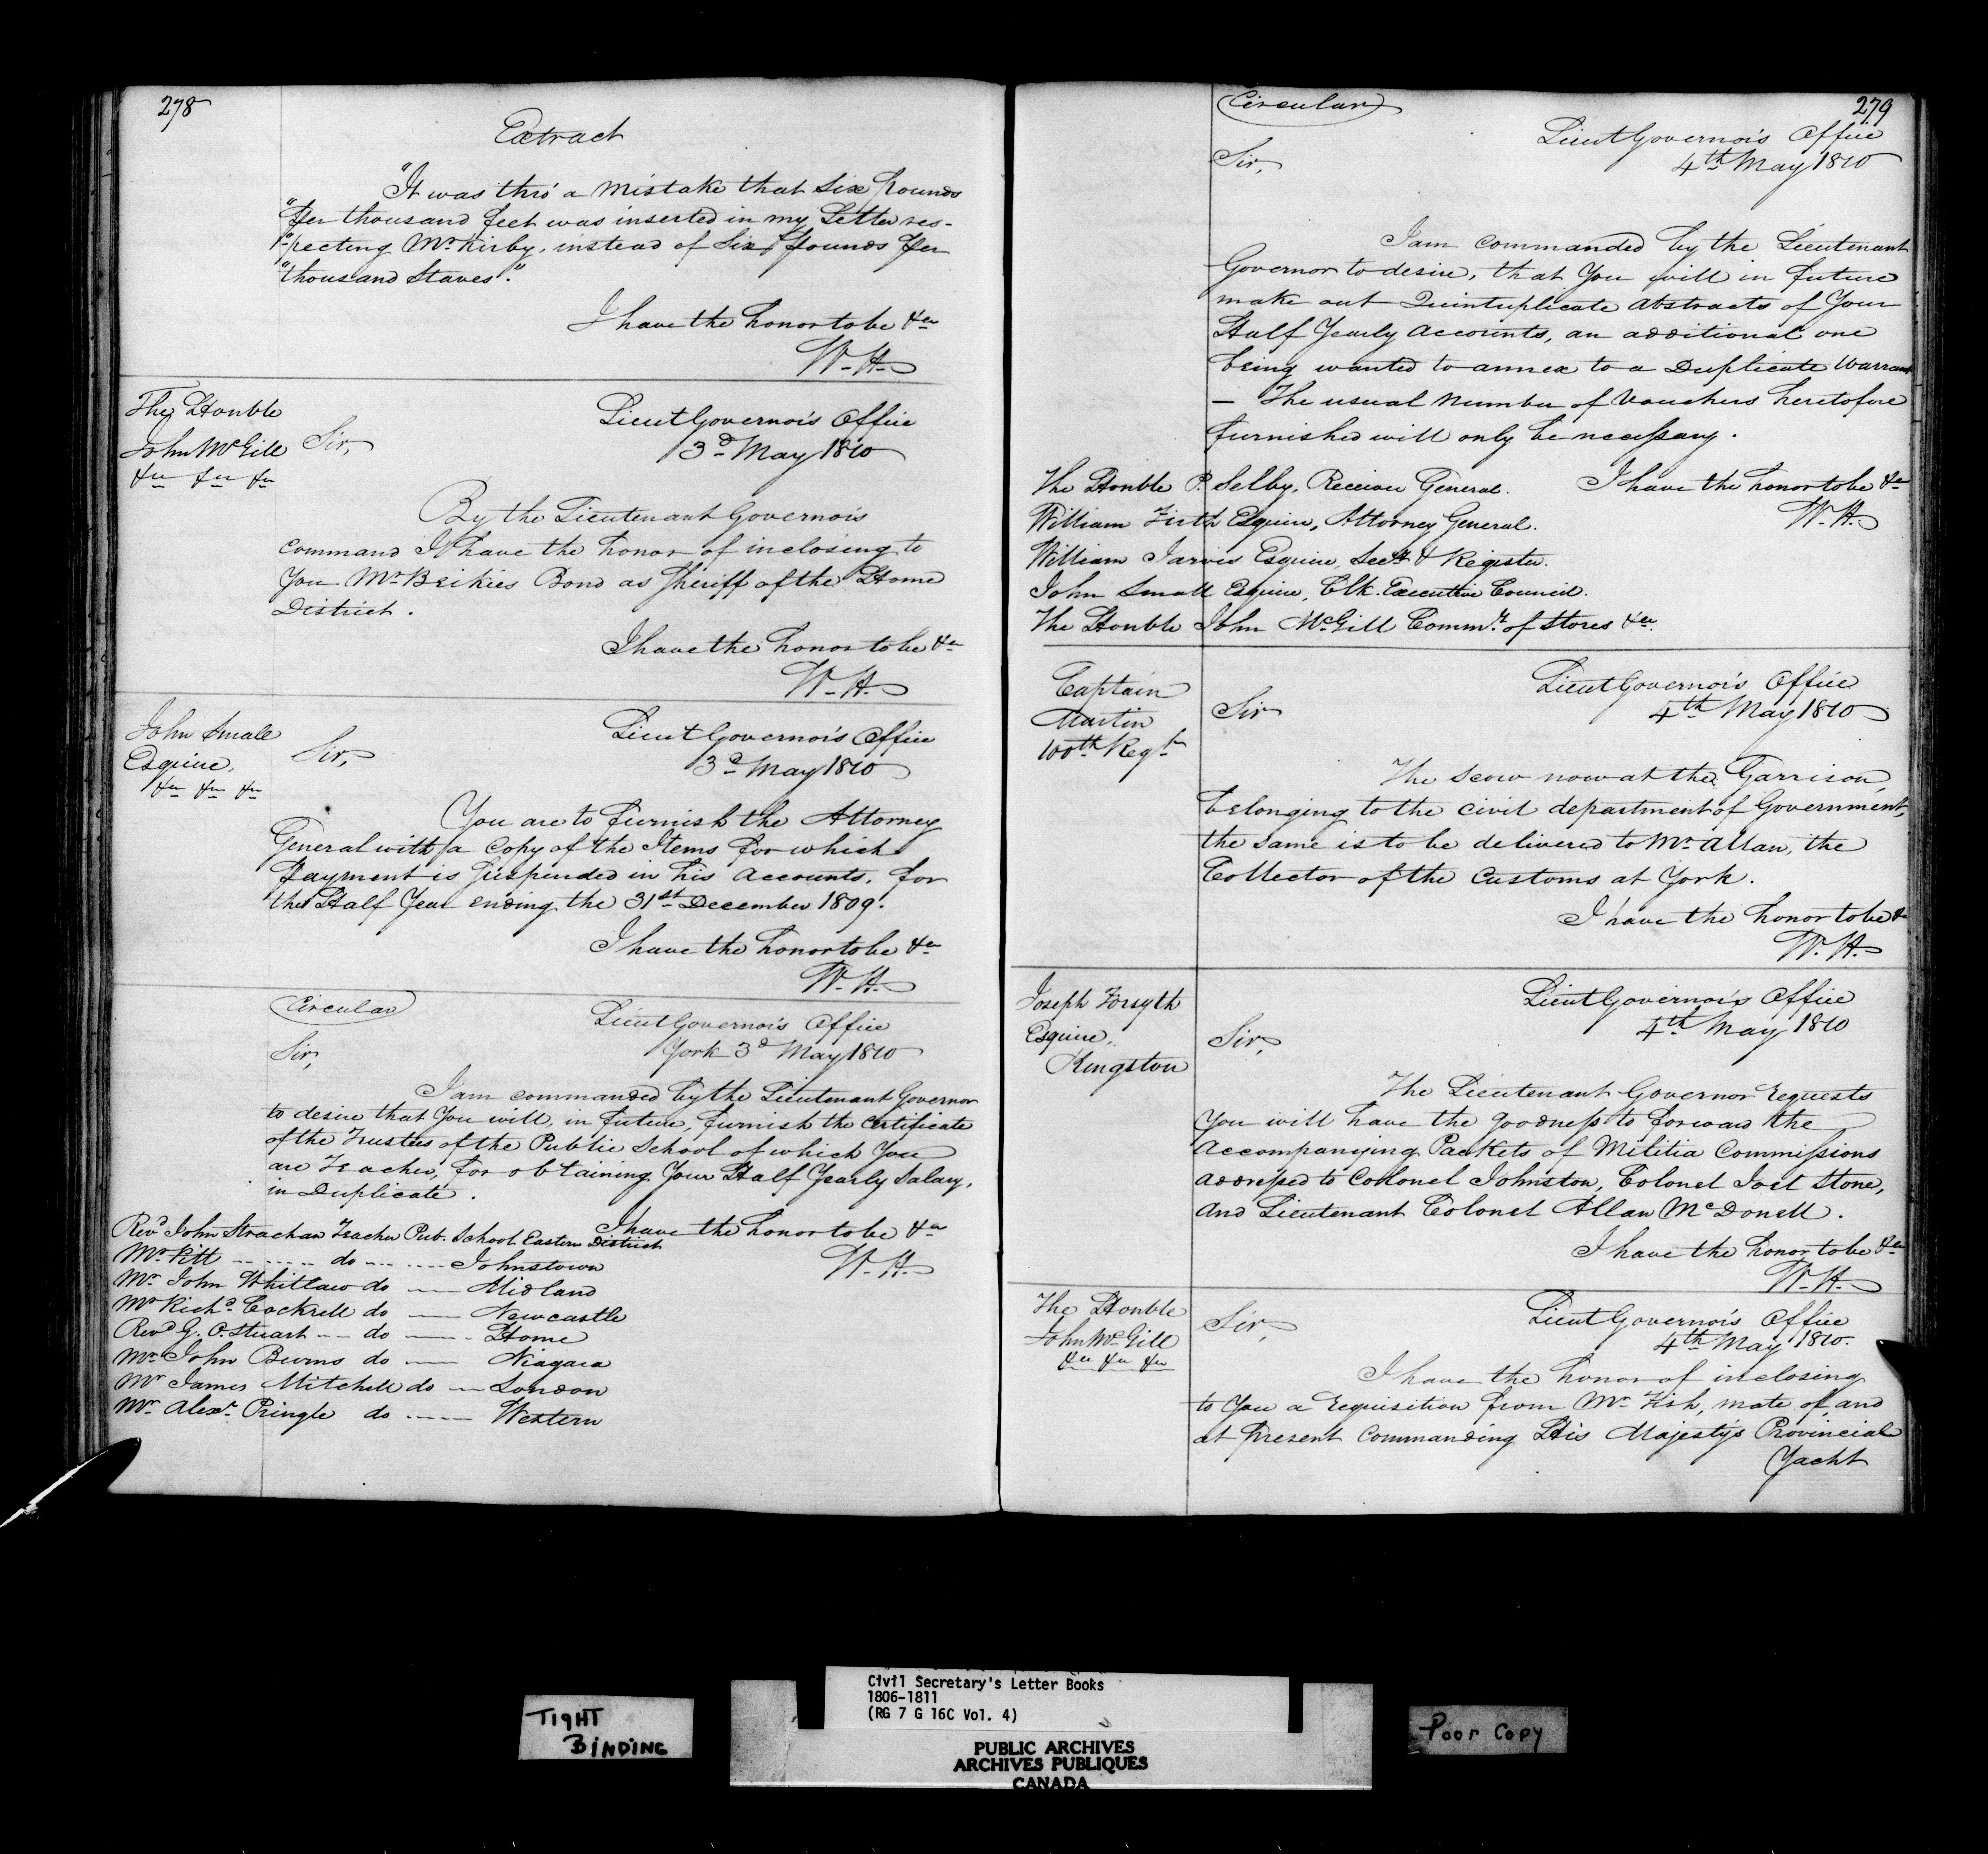 278
Extract
"It was thro' a Mistake that Six Pounds
"Per thousand feet was inserted in my Letter res-
"-pecting Mr. Kirby, instead of Six Pounds Per
"thousand Staves."
I have the honor to be &ca
W. H.
The Honble
John McGill
&ca &ca &ca
Lieut Governor's Office
3d May 1810
Sir,
By the Lieutenant Governor's
Command I have the honor of inclosing to
You Mr. Beikies Bond as Sheriff of the Home
District.
I have the honor to be &ca
W. H.
John Small
Esquire,
&ca &ca &ca
Lieut Governor's Office
3d May 1810
Sir,
You are to furnish the Attorney
General with a Copy of the Items for which
Payment is Suspended in his Accounts, for
the Half Year ending the 31st December 1809.
I have the honor to be &ca
W. H.
Circular
Lieut Governor's Office
York 3d May 1810
Sir,
I am commanded by the Lieutenant Governor
to desire that You will, in future, furnish the Certificate
of the Trustees of the Public School of which You
are Teacher, for obtaining Your Half Yearly Salary,
in Duplicate.
I have the honor to be &ca
W. H.
Revd John Strachan Teacher Pub. School Eastern District
Mr. Pitt do Johnstown
Mr. John Whitlaw do Midland
Mr. Richd. Cockrell do Newcastle
Revd G. O. Stuart do Home
Mr. John Burns do Niagara
Mr. James Mitchell do London
Mr. Alexr. Pringle do Western
279
Circular
Lieut Governor's Office
4th May 1810
Sir,
I am commanded by the Lieutenant
Governor to desire, that You will in future
make out Quintuplicate Abstracts of Your
Half Yearly Accounts, an additional one
being wanted to annex to a Duplicate Warrant
— The usual Number of Vouchers heretofore
furnished will only be necessary.
I have the honor to be &ca
W. H.
The Honble P. Selby, Receiver General.
William Firth Esquire, Attorney General.
William Jarvis Esquire, Secy. & Register.
John Small Esquire, Clk. Executive Council.
The Honble John McGill Commry. of Stores &ca.
Captain
Martin
100th Regt.
Lieut Governor's Office
4th May 1810
Sir
The Scow now at the Garrison,
belonging to the Civil department of Government,
the same is to be delivered to Mr. Allan, the
Collector of the Customs at York.
I have the honor to be &c
W. H.
Joseph Forsyth
Esquire,
Kingston
Lieut Governor's Office
4th May 1810
Sir,
The Lieutenant Governor requests
You will have the goodness to forward the
Accompanying Packets of Militia Commissions
addressed to Colonel Johnston, Colonel Joel Stone,
and Lieutenant Colonel Allan McDonell.
I have the honor to be &ca
W. H.
The Honble
John McGill
&ca &ca &ca
Lieut Governor's Office
4th May 1810.
Sir,
I have the honor of inclosing
to You a requisition from Mr. Fish, mate of, and
at Present Commanding His Majesty's Provincial
Yacht
TIGHT
BINDING
Civil Secretary's Letter Books
1806-1811
(RG 7 G 16C Vol. 4)
PUBLIC ARCHIVES
ARCHIVES PUBLIQUES
CANADA
Poor Copy